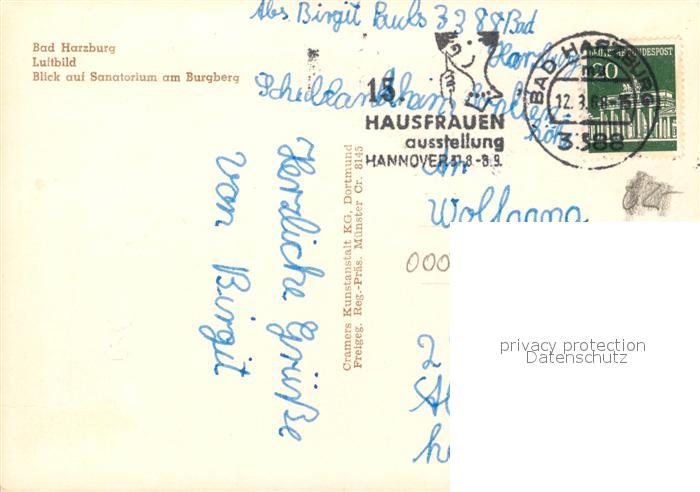 Bad Harzburg
Luftbild
Blick auf Sanatorium am Burgberg
Abs. Birgit Pauls 3388 Bad
Harzburg
15.
HAUSFRAUEN
ausstellung
HANNOVER 31.8.-8.9.
BAD HARZBURG
12.3.68
3388
DEUTSCHE BUNDESPOST
20
An
Wolfgang
000
2
Herzliche Grüße
von Birgit
Cramers Kunstanstalt KG, Dortmund
Freigeg. Reg.-Präs. Münster Cr. 8145
privacy protection
Datenschutz